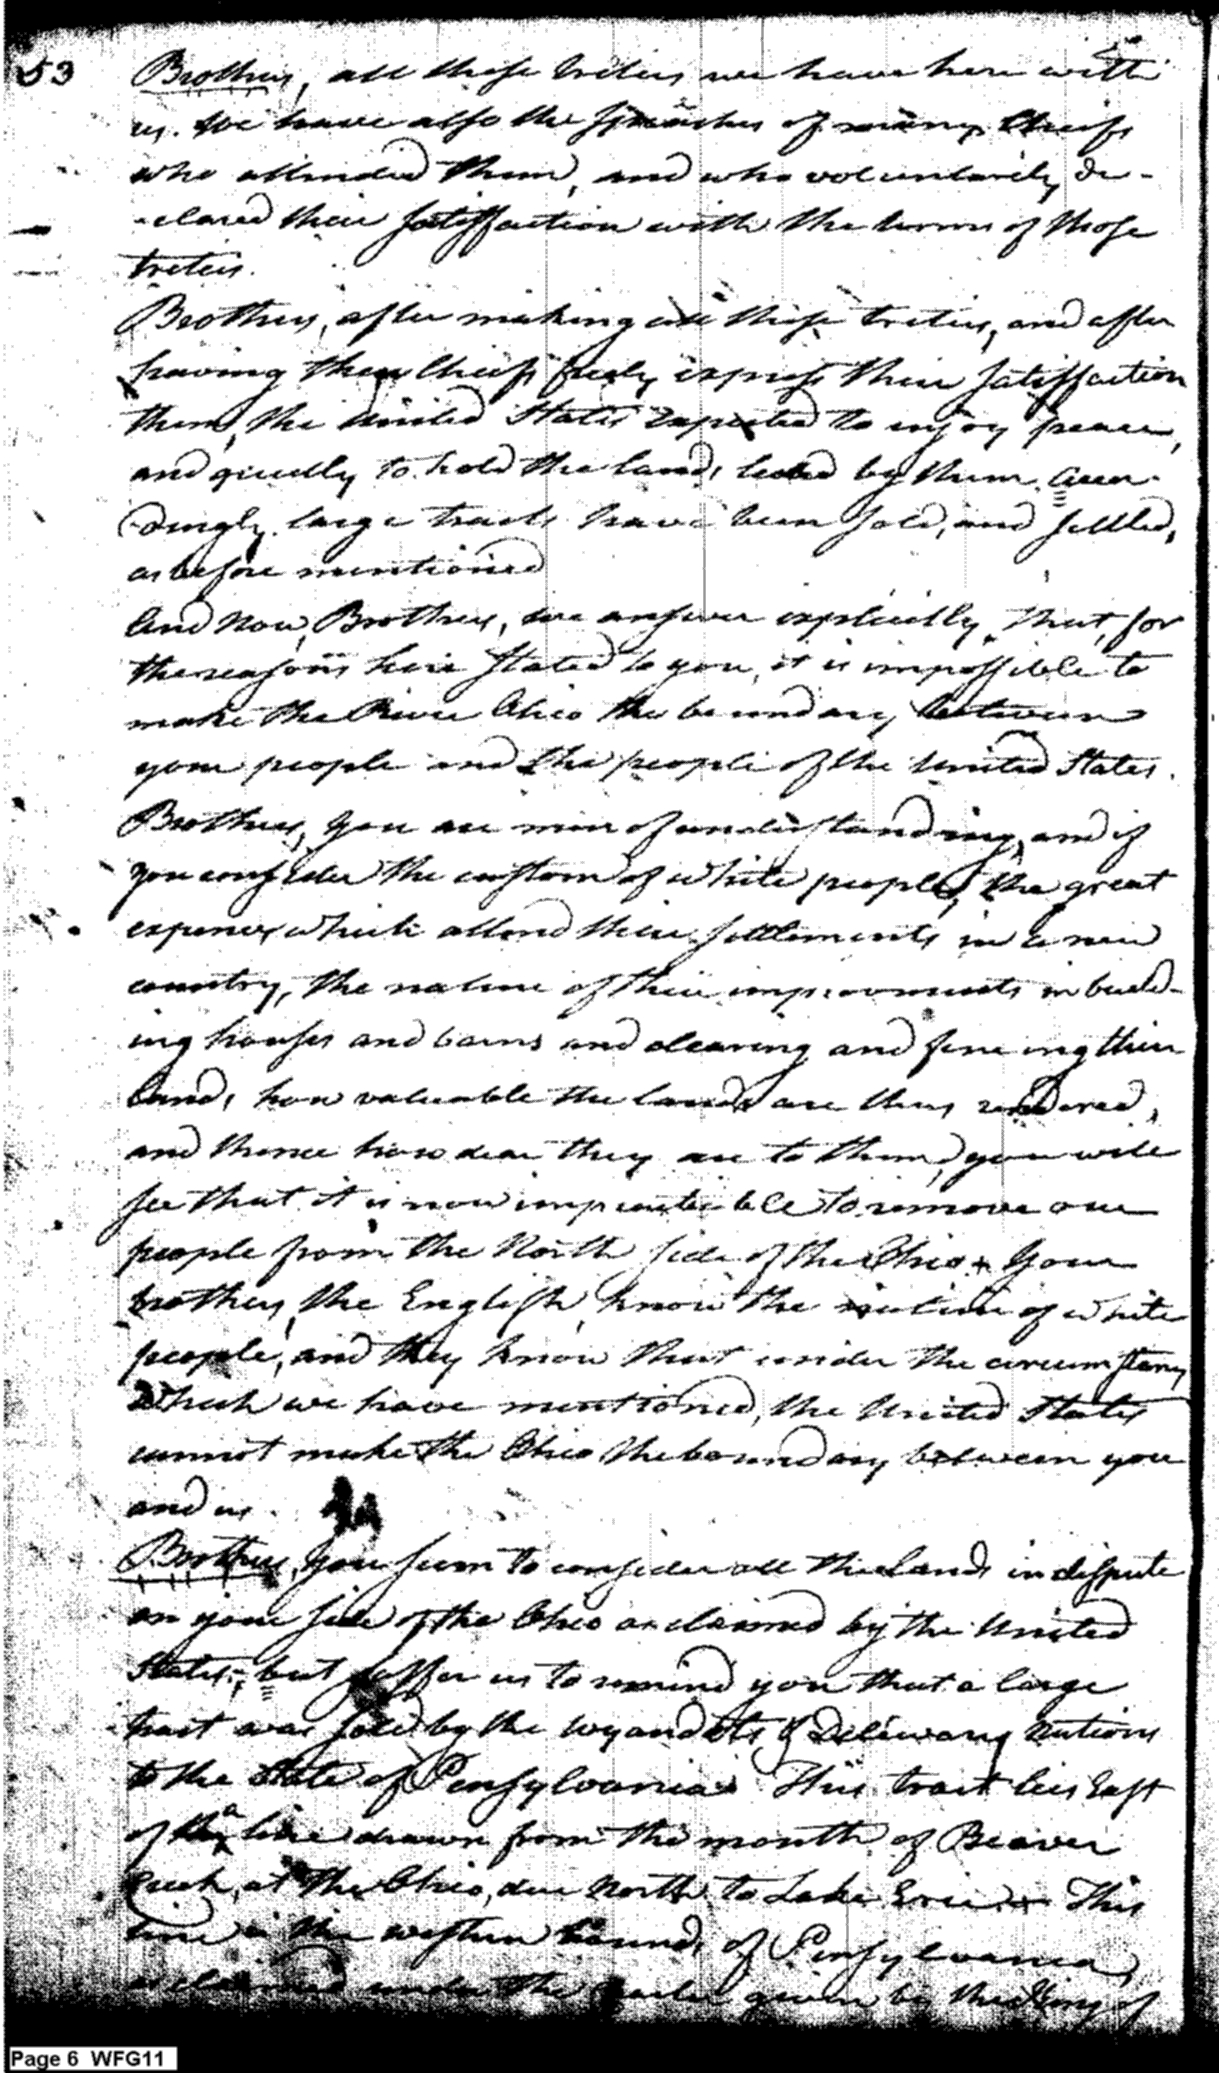 53 Brothers, all these treties we have here with
us. We have also the speeches of many Chiefs
who attended them, and who voluntarily de-
-clared their satisfaction with the terms of those
treties.
Brothers, after making all these treties, and after
having these Chiefs freely express their satisfaction
them, the United States expected to enjoy peace,
and quietly to hold the lands ceded by them. Accor-
dingly large tracts have been sold, and settled,
as before mentioned
And now, Brothers, we answer explicitly, That, for
the reasons here stated to you, it is impossible to
make the River Ohio the boundary between
your people and the people of the United States.
Brothers, You are men of understanding, and if
you consider the custom of white people, the great
expences which attend their settlements in a new
country, the nature of their improvements in build-
ing houses and barns and clearing and fenceing their
lands, how valuable the lands are thus rendered,
and thence how dear they are to them, you will
see that it is now impracticable to remove our
people from the North side of the Ohio. Your
brothers, the English, know the nature of white
people, and they know that under the circumstances
which we have mentioned, the United States
cannot make the Ohio the boundary between you
and us.
Brothers, You seem to consider all the Lands in dispute
on your side of the Ohio as claimed by the United
States; but suffer us to remind you that a large
tract was sold by the Wyandots & Delewary Nations
to the State of Pensylvania. This tract lies East
of a line drawn from the mouth of Beaver
creek, at the Ohio, due North to Lake Erie. This
line is the western bounds of Pensylvania,
as claimed under the charter given by the King of
Page 6 WFG11